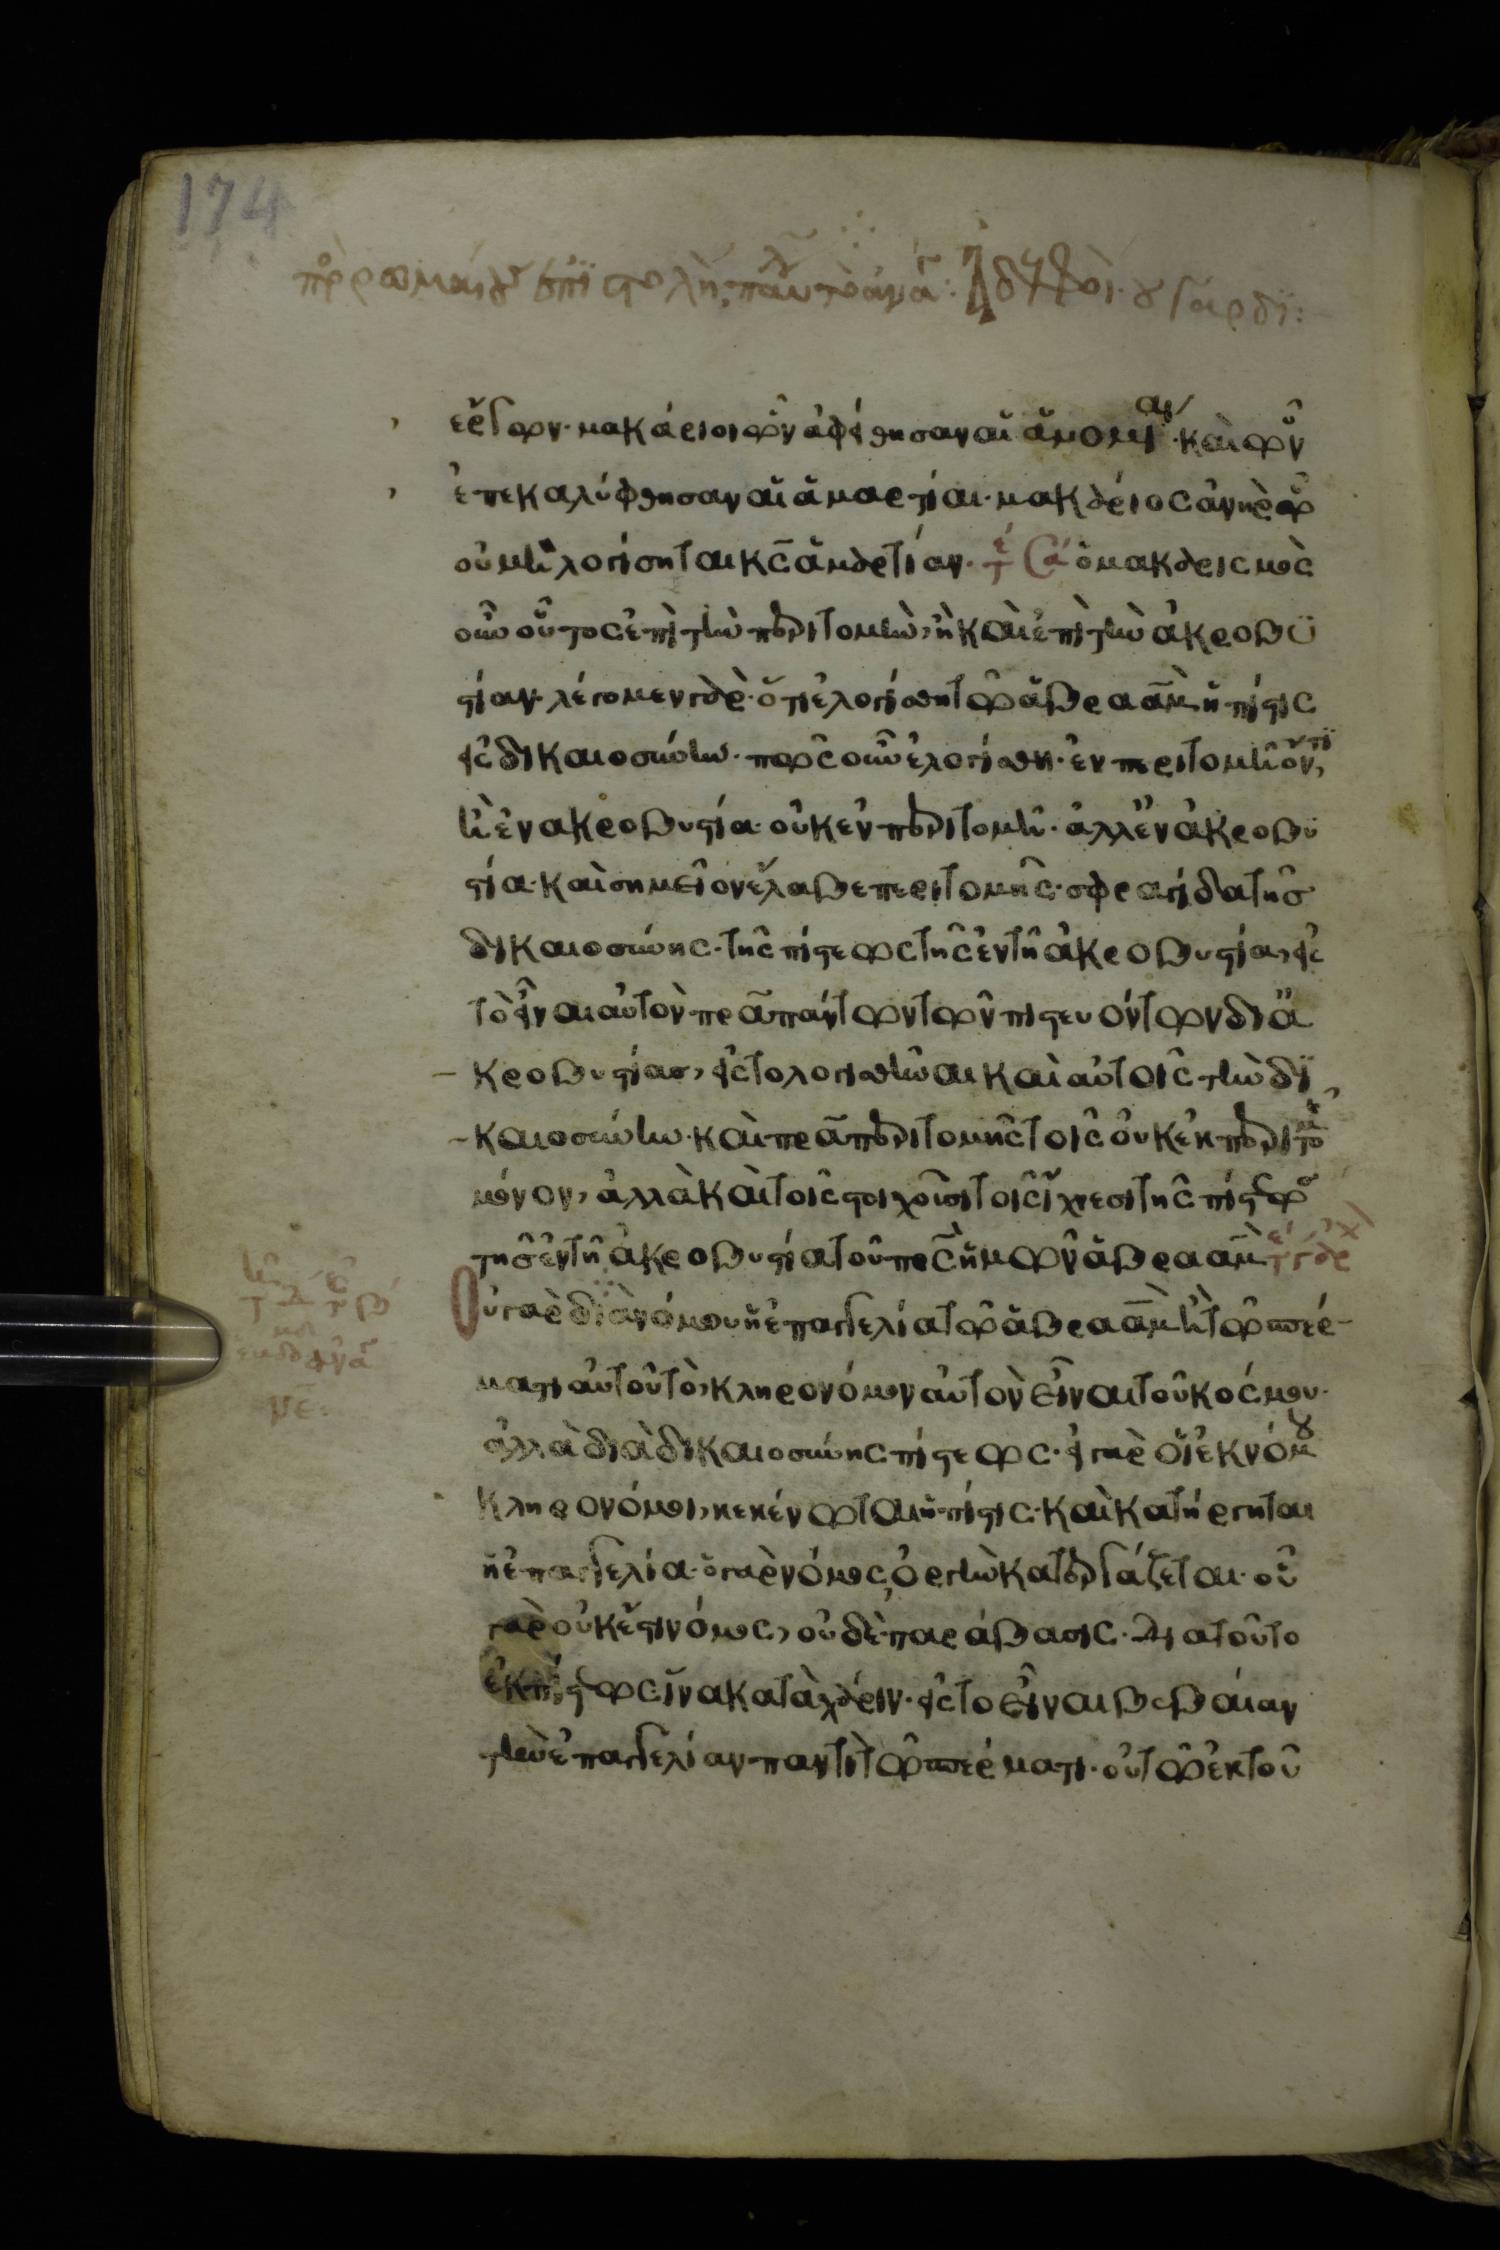 174
πρὸ ρωμαίους ἐπιστολὴ παύλου
ἔργων· μακάριοι ὧν ἀφέθησαν αἱ ἀνομίαι· καὶ ὧν
ἐπεκαλύφθησαν αἱ ἁμαρτίαι· μακάριος ἀνὴρ ᾧ
οὐ μὴ λογίσηται κ̅ς ἁμαρτίαν· τε ὁ μακαρισμὸς
οὖν οὗτος ἐπὶ τὴν περιτομὴν, ἢ καὶ ἐπὶ τὴν ἀκροβυ
στίαν· λέγομεν γὰρ· ὅτι ἐλογίσθη τῷ ἀβραὰμ ἡ πίστις
εἰς δικαιοσύνην· πῶς οὖν ἐλογίσθη· ἐν περιτομῇ ὄντι,
ἢ ἐν ἀκροβυστία· οὐκ ἐν περιτομῇ· ἀλλ' ἐν ἀκροβυ
στία· καὶ σημεῖον ἔλαβε περιτομῆς· σφραγίδα τῆς
δικαιοσύνης· τῆς πίστεως τῆς ἐν τῇ ἀκροβυστία, εἰς
τὸ εἶναι αὐτὸν πρ̅α πάντων τῶν πιστευόντων δι' ἀ
κροβυστίας, εἰς τὸ λογισθῆναι καὶ αὐτοῖς τὴν δι
καιοσύνην· καὶ πρ̅α περιτομῆς τοῖς οὐκ ἐκ περιτομῆς
μόνον, ἀλλὰ καὶ τοῖς στοιχοῦσι τοῖς ἴχνεσι τῆς πίστεως
τῆς ἐν τῇ ἀκροβυστία τοῦ πρ̅ς ἡμῶν ἀβραάμ
Οὐ γὰρ διὰ νόμου ἡ ἐπαγγελία τῷ ἀβραὰμ ἢ τῷ σπέρ
ματι αὐτοῦ τὸ, κληρονόμον αὐτὸν εἶναι τοῦ κόσμου·
ἀλλὰ διὰ δικαιοσύνης πίστεως· εἰ γὰρ οἱ ἐκ νόμου
κληρονόμοι, κεκένωται ἡ πίστις· καὶ κατήργηται
ἡ ἐπαγγελία· ὁ γὰρ νόμος ὀργὴν κατεργάζεται· οὗ
γὰρ οὐκ ἔστι νόμος, οὐδὲ παράβασις· Διὰ τοῦτο
ἐκ πίστεως ἵνα κατὰ χάριν· εἰς τὸ εἶναι βεβαίαν
τὴν ἐπαγγελίαν παντὶ τῷ σπέρματι· οὐ τῷ ἐκ τοῦ